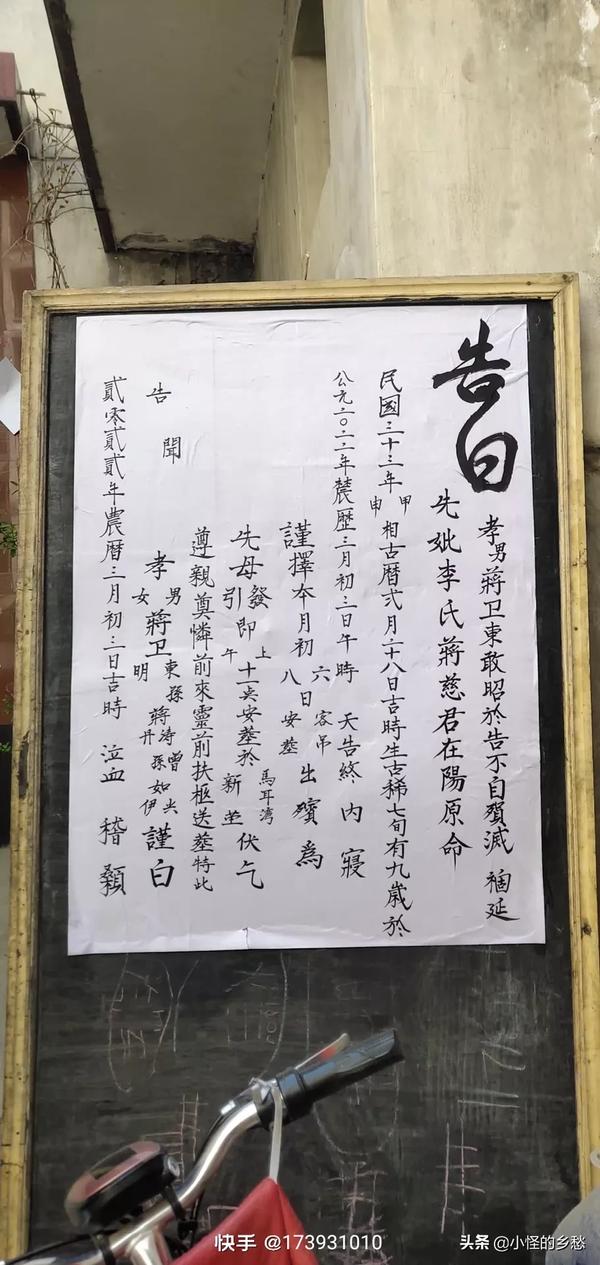 告曰
孝男蔣卫東敢昭於告不自殞滅 禍延
先妣李氏蔣慈君在陽原命
民國三十三年甲申相古曆弍月二十八日吉時生古稀七旬有九歲於
公元二〇二二年農歷三月初三日午時 天告終 內寢
謹擇本月初六客吊八日安葬出殯為
先母發引即上午十一央安葬於馬耳湾新茔伏乞
遵親奠憐前來靈前扶柩送葬特此
告聞
孝男女蔣卫東明孫蔣涛丹曾孫如央伊謹白
貳零貳貳年農曆三月初三日吉時 泣血 稽顙
快手 @173931010
头条 @小怪的乡愁